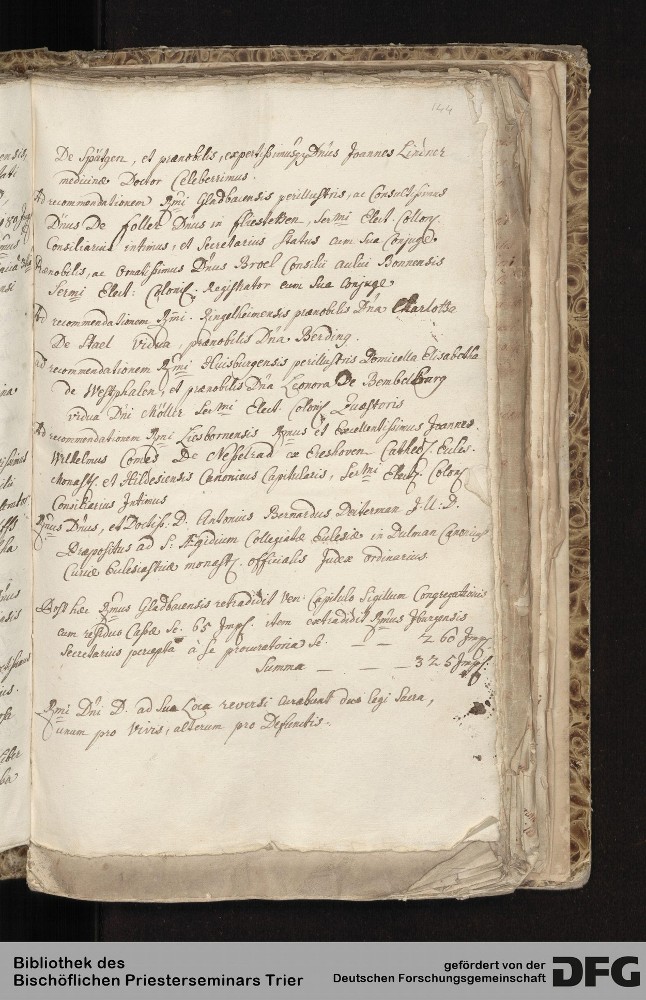 144
De Spätgen, et praenobilis, expertissimusq; Dnus Joannes Lindner
medicinae Doctor Celeberrimus.
Ad recommendationem Rmi Gladbacensis perillustris, ac Consultissimus
Dnus De Foller Dnus in Sermi Elect. Colon.
Consiliarius intimus, et Secretarius Status cum Sua Conjuge.
Praenobilis, ac Ornatissimus Dnus Broel Consilii aulici Bonnensis
Sermi Elect: Colonis. Registrator cum Sua Conjuge
Ad recommendationem Rmi. Ringelheimensis praenobilis Dna Charlotta
De Stael Vidua, praenobilis Dna Berding.
ad recommendationem Rmi Huisburgensis perillustris Domicella Elisabetha
de Westphalen, et praenobilis Dna Leonora De Bembelburg
vidua Dni Möller Sermi Elect. Colonis Quaestoris
Ad recommendationem Rmi Liesbornensis Rmus et Excellentissimus Joannes
Wilhelmus Comes De Nesselrad ex Ereshoven Cathed. Eccles.
Monast. et Hildesiensis Canonicus Capitularis, Sermi Elect. Colon.
Consiliarius Intimus
Rmus Dnus, et Doctiss. D. Antonius Bernardus Deiterman J. U. D.
Praepositus ad S. Aegidium Collegiatae Ecclesiae in Dulman Canonicus
Curiae Ecclesiasticae monast. officialis Judex ordinarius
Post haec Rmus Gladbacensis retradidit Ven: Capitulo Sigillum Congregationis
cum residuo Capsae sc. 65 Imp. item extradidit Rmus Iburgensis
Secretarius percepta à se procuratoria sc. — — 260 Imp.
Summa — — — 325 Imp:
Rmi Dni D. ad sua Loca reversi curabunt duo legi Sacra,
unum pro Vivis, alterum pro Defunctis.
Bibliothek des
Bischöflichen Priesterseminars Trier
gefördert von der
Deutschen Forschungsgemeinschaft
DFG